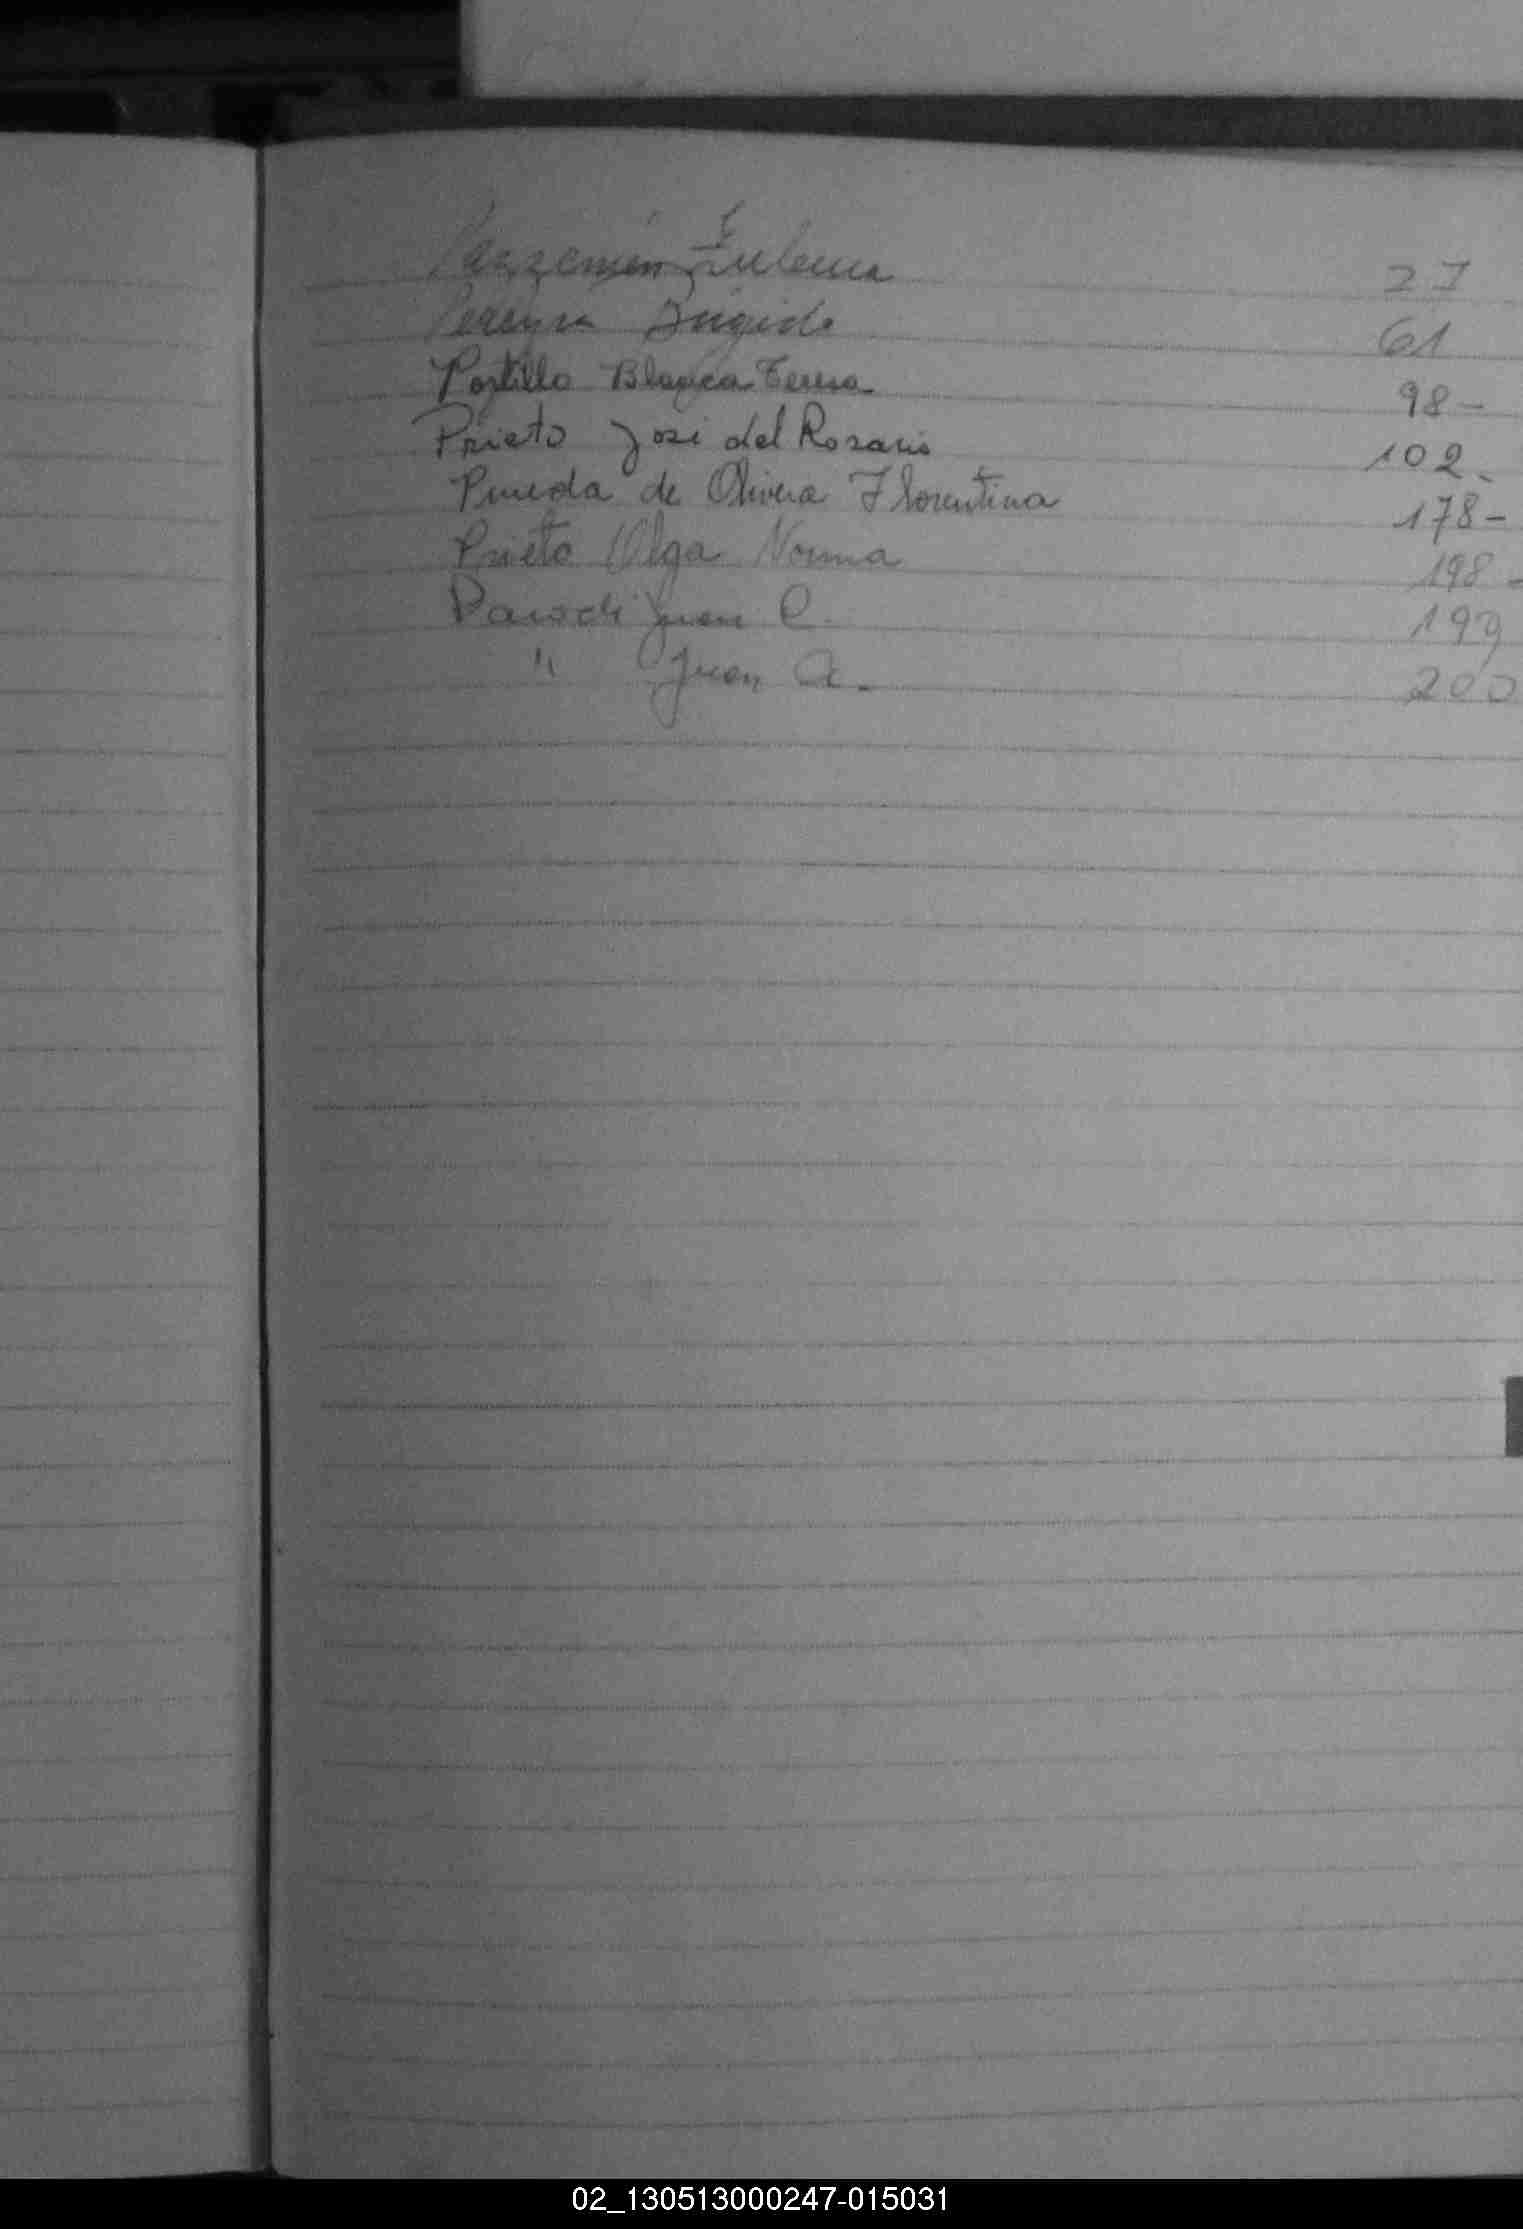 Zulema 27
Pereyra Brigido 61
Portillo Blanca Teresa 98-
Prieto José del Rosario 102-
Pineda de Olivera Florentina 178-
Prieto Olga Norma 198-
Parodi Juan C. 199
" Juan A. 200
02_130513000247-015031